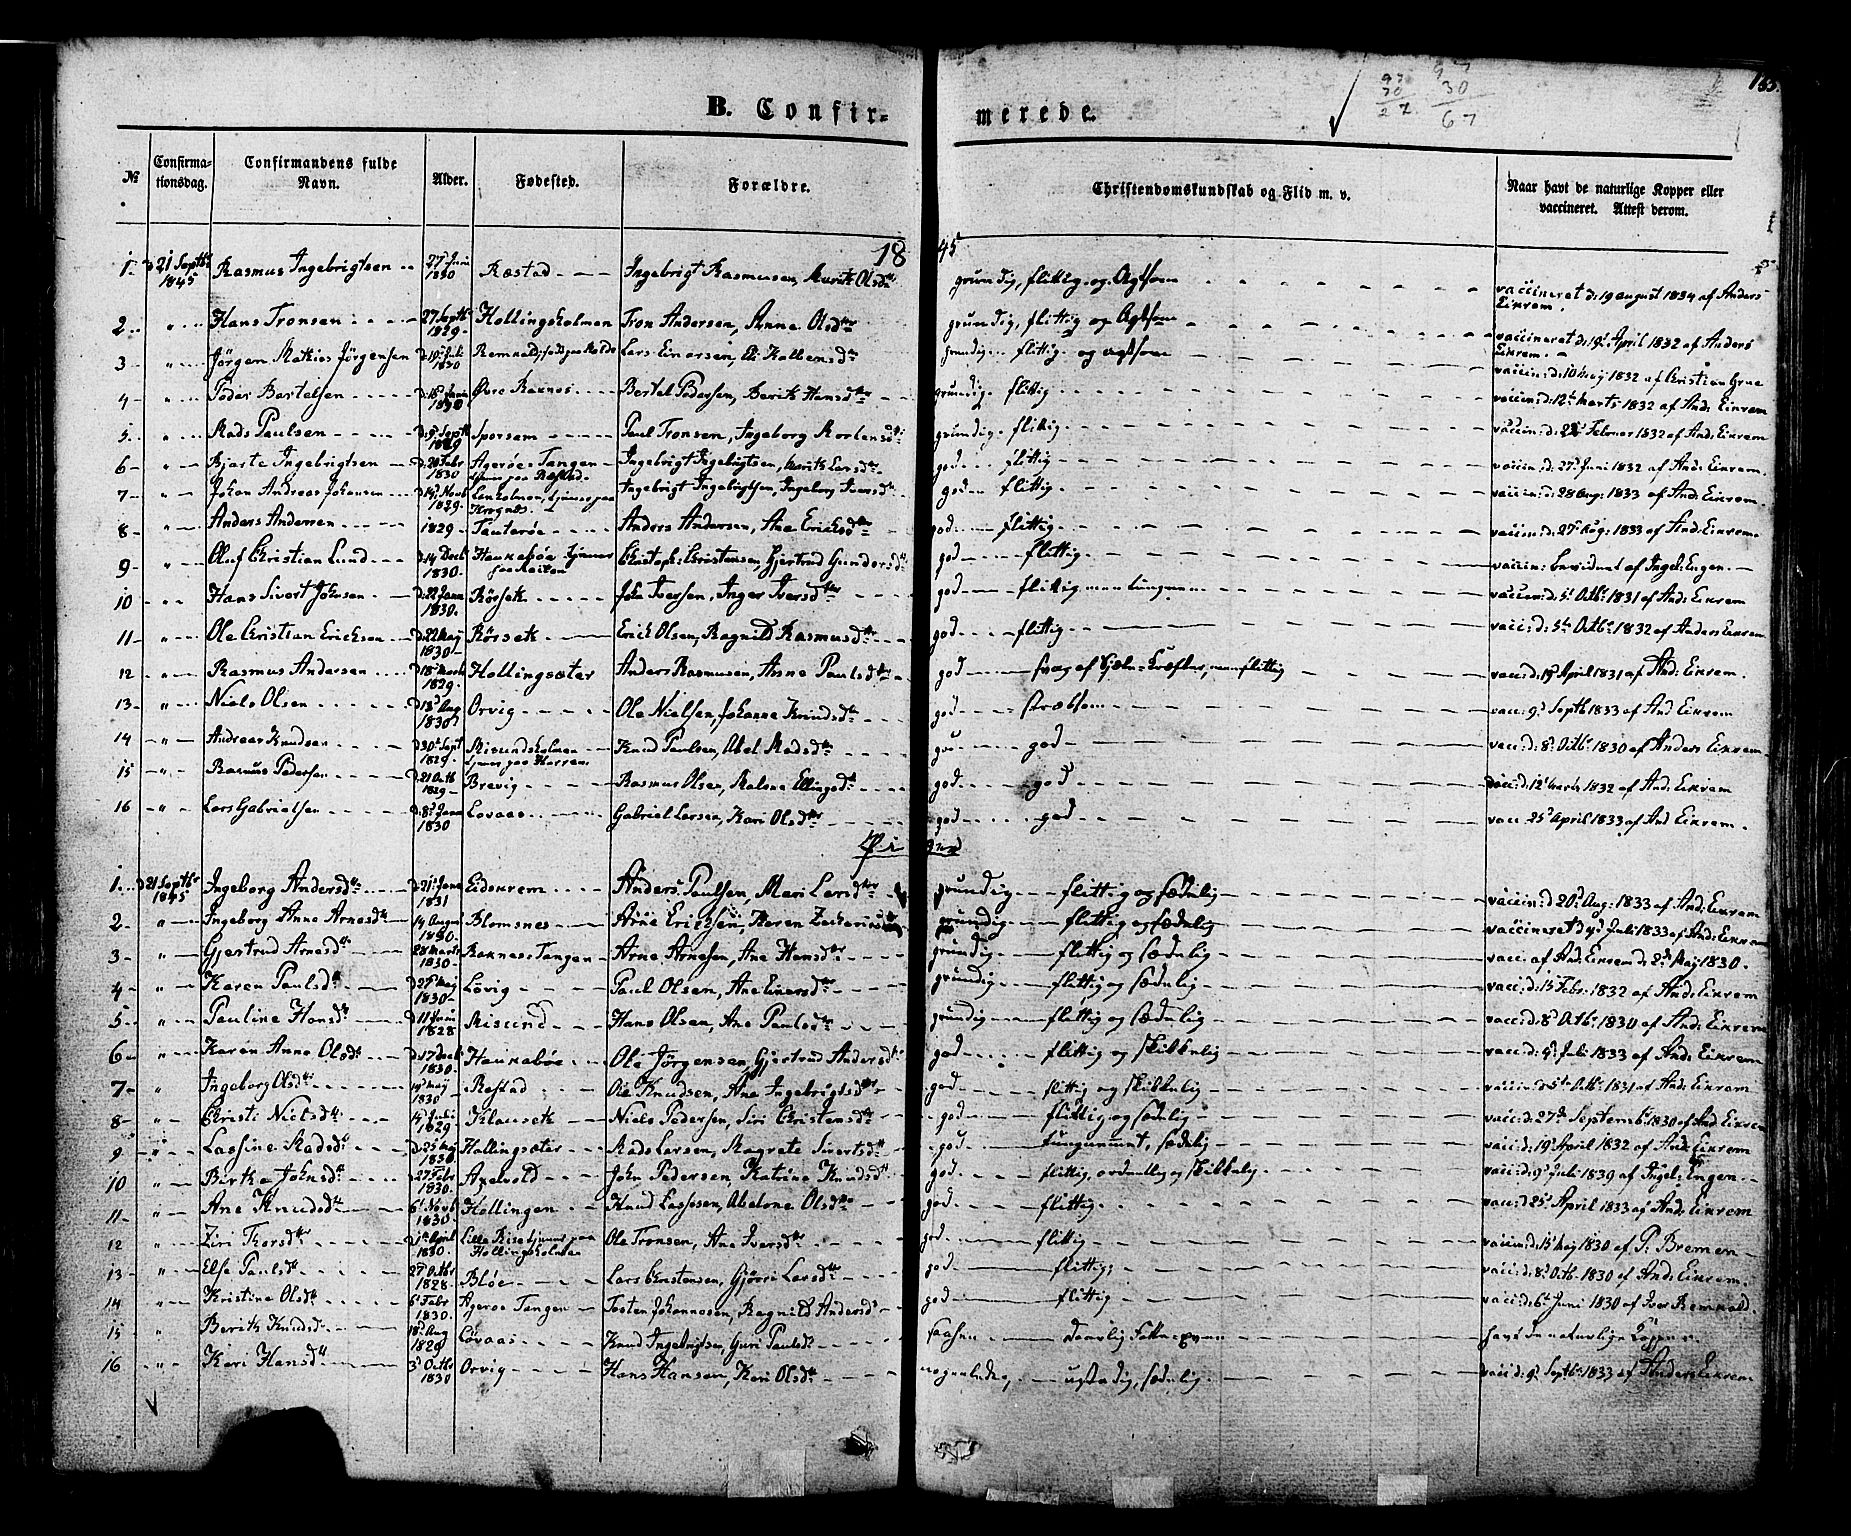 B. Confir-
merede.
97
30
27
97
30
67
155.
№
Confirma-
tionsdag.
Confirmandens fulde
Navn.
Alder.
Fødested.
Forældre.
Christendomskundskab og Flid m. v.
Naar havt de naturlige Kopper eller
vaccineret. Attest derom.
18
45
1. d 21 Septbr 1845 Rasmus Ingebrigtsen 27 Juni 1830 Ræstad Ingebrigt Rasmussen, Marit Olsdtr grundig, flittig og Agtsom vaccineret d: 19 august 1834 af Anders Eikrem
2 " Hans Tronsen 27 Septbr 1829 Hollingsholmen Tron Andersen, Anne Olsdtr grundig, flittig og Agtsom vaccineret d: 19 April 1832 af Anders Eikrem
3 " Jörgen Mathias Jörgensen d 19 Juli 1830 Lars Einersen, grundig flittig og agtsom vaccin: d: 10 Maj 1832 af Christian
4 " Peder Bertelsen d: 18 Juni 1830 Øvre Raknes Bertel Pedersen, Berith Hansdtr grundig flittig vaccin: d: 12 Marts 1832 af And: Eikrem
5 " Mads Paulsen d: 9 Septbr 1829 Sporsem Paul Tronsen, Ingeborg grundig flittig vaccin: d: Februar 1832 af And: Eikrem
6 " Bjarte Ingebrigtsen 20 Febr 1830 Agerøe Tangen tjener paa Ræstad Ingebrigt Ingebrigtsen, Marit Larsdtr god flittig vaccin: d: 27 Juni 1832 af And: Eikrem
7 " Johan Andreas Johansen d 14 Novb 1829 Lenholmen, tjener paa Ingebrigt Ingebrigtsen, Ingeborg Iversdtr god flittig vaccin: d: 28 Aug: 1833 af And: Eikrem
8 " Anders Andersen 1829 Tauterøe Anders Andersen, Ane Ericksdtr god flittig vaccin: d: 27 Aug: 1833 af And: Eikrem
9 " Oluf Christian Lund d 14 Decb 1830 Haukebøe tjener paa Christoph: Christensen, Gjertrud Gundersdtr god flittig vaccin: bevidnet af Ingel: Engen
10 " Hans Sivert Johnsen d: 22 Janu 1830 Rörsek John Iversen, Inger Iversdtr god flittig men tungnem vaccin: d: 5 Octb: 1831 af And: Eikrem
11 " Ole Christian Ericksen d 22 Maj 1830 Rörsek Erick Olsen, Ragnild Rasmusdtr god flittig vacc: d: 5 Octb: 1832 af Anders Eikrem
12 " Rasmus Andersen d 18 March 1829 Hollingsæter Anders Rasmusen, Anne Paulsdtr god svag af Sjæls-Kræfter, men flittig vacc: d: 19 April 1831 af And: Eikrem
13 " Niels Olsen d 13 Aug 1830 Orvig Ole Nielsen, Johanne Knudsdtr god stræbsom vacc 9 Septb 1833 af And Eikrem
14 " Andreas Knudsen d 30 Sept 1829 Misundsholmen tjener paa Harrem Knud Paulsen, Abel Madsdtr god god vacc: d: 8 Octb: 1830 af Anders Eikrem
15 " Rasmus Pedersen d 21 Octb 1829 Brevig Rasmus Olsen, Malene Ellingsdtr god god vacc: d: 12 Marts 1832 af And: Eikrem
16 " Lars Gabrielsen d: 8 Janu 1830 Lovaas Gabriel Larsen, Kari Olsdtr god god vacc 25 April 1833 af And Eikrem
Piger
1. d 21 Septbr 1845 Ingeborg Andersdtr d 21 Janu 1831 Eidskrem Anders Paulsen, Mari Larsdtr grundig flittig og sædelig vaccin d: 20 Aug: 1833 af And: Eikrem
2 " Ingeborg Anne Arnesdtr 14 Augu 1830 Blomsnes Arne Ericksen, Karen grundig flittig og sædelig vaccineret d Juli 1833 af And: Eikrem
3 " Gjertrud Arnesdtr 28 Marts 1830 Raknes Tangen Arne Arnesen, Ane Hansdtr grundig flittig og sædelig vacc: af And: Eikrem d: 2 Maj 1830
4 " Karen Paulsdtr d 27 Maj 1830 Lovig Paul Olsen, Ane Einersdtr grundig flittig og sædelig vacc: d: 15 Febr: 1832 af And: Eikrem
5 " Pauline Hansdtr d 11 Juni 1828 Misund Hans Olsen, Ane Paulsdtr grundig flittig og sædelig vacc: d: 8 Octb: 1830 af And: Eikrem
6 " Karen Anne Olsdtr d 17 Decb 1830 Haukebøe Ole Jörgensen, Gjertrud Andersdtr god flittig og skikkelig vacc: d: 9 Juli 1833 af And: Eikrem
7 " Ingeborg Olsdtr 19 Maj 1830 Ræstad Ole Knudsen, Ane Ingebrigtsdtr god flittig og skikkelig vaccin: d 5 Octb: 1831 af And: Eikrem
8 " Christi Nielsdtr 14 Juli 1829 Klauset Niels Pedersen, Siri Christensdtr god flittig og sædelig vacc: d: 27 Septemb: 1830 af And Eikrem
9 " Lassine Madsdtr d: 25 Maj 1830 Hollingsæter Mads Larsen, Magrete Sivertsdtr god tungnemmet, sædelig vacc: d: 19 April 1832 af And: Eikrem
10 " Birthe Johnsdtr 27 Febr 1830 Axelvold John Pedersen, Katrine Knudsdtr god flittig, ordentlig og skikkelig vacc: d: 9 Juli 1839 af Ingel: Engen
11 " Ane Knudsdtr 6 Novb 1830 Hollingen Knud Lassesen, Abelone Olsdtr god flittig vacc: d 25 April 1833 af And: Eikrem
12 " Ziri Thorsdtr d 1 April 1830 Lille tjener paa Hollingsholmen Ole Tronsen, Ane Iversdtr god flittig vaccin: d: 15 Maj 1830 af P: Bremen
13 " Else Paulsdtr 27 Octbr 1828 Bløe Lars Christensen, Gjörri Larsdtr god flittig vacc: d: 8 Octb: 1830 af And: Eikrem
14 " Kristine Olsdtr 6 Febr 1830 Agerøe Tangen Tosten Johannesen, Ragnild Andersdtr god flittig vacc: d: 6 Juni 1830 af Iver Remvold
15 " Berith Knudsdtr 18 Aug 1829 Lovaas Knud Ingebrigtsen, Guri Paulsdtr daarlig havt de naturlige Kopper
16 " Kari Hansdtr 3 Octbr 1830 Orvig Hans Hansen, Kari Olsdtr nogenledes ustadig, sædelig vacc: d: 9 Septb: 1833 af Anders Eikrem